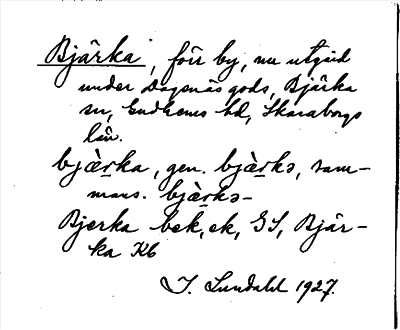 Bjärka, förr by, nu utgård
under Dagsnäs gods, Bjärka
sn, Gudhems hd, Skaraborgs
län.
bjæ̀rka, gen. bjæ̀rkə, sam-
mans. bjæ̀rkə-
Bjerka bek, ek, GS, Bjär-
ka Kb
I. Lundahl 1927.